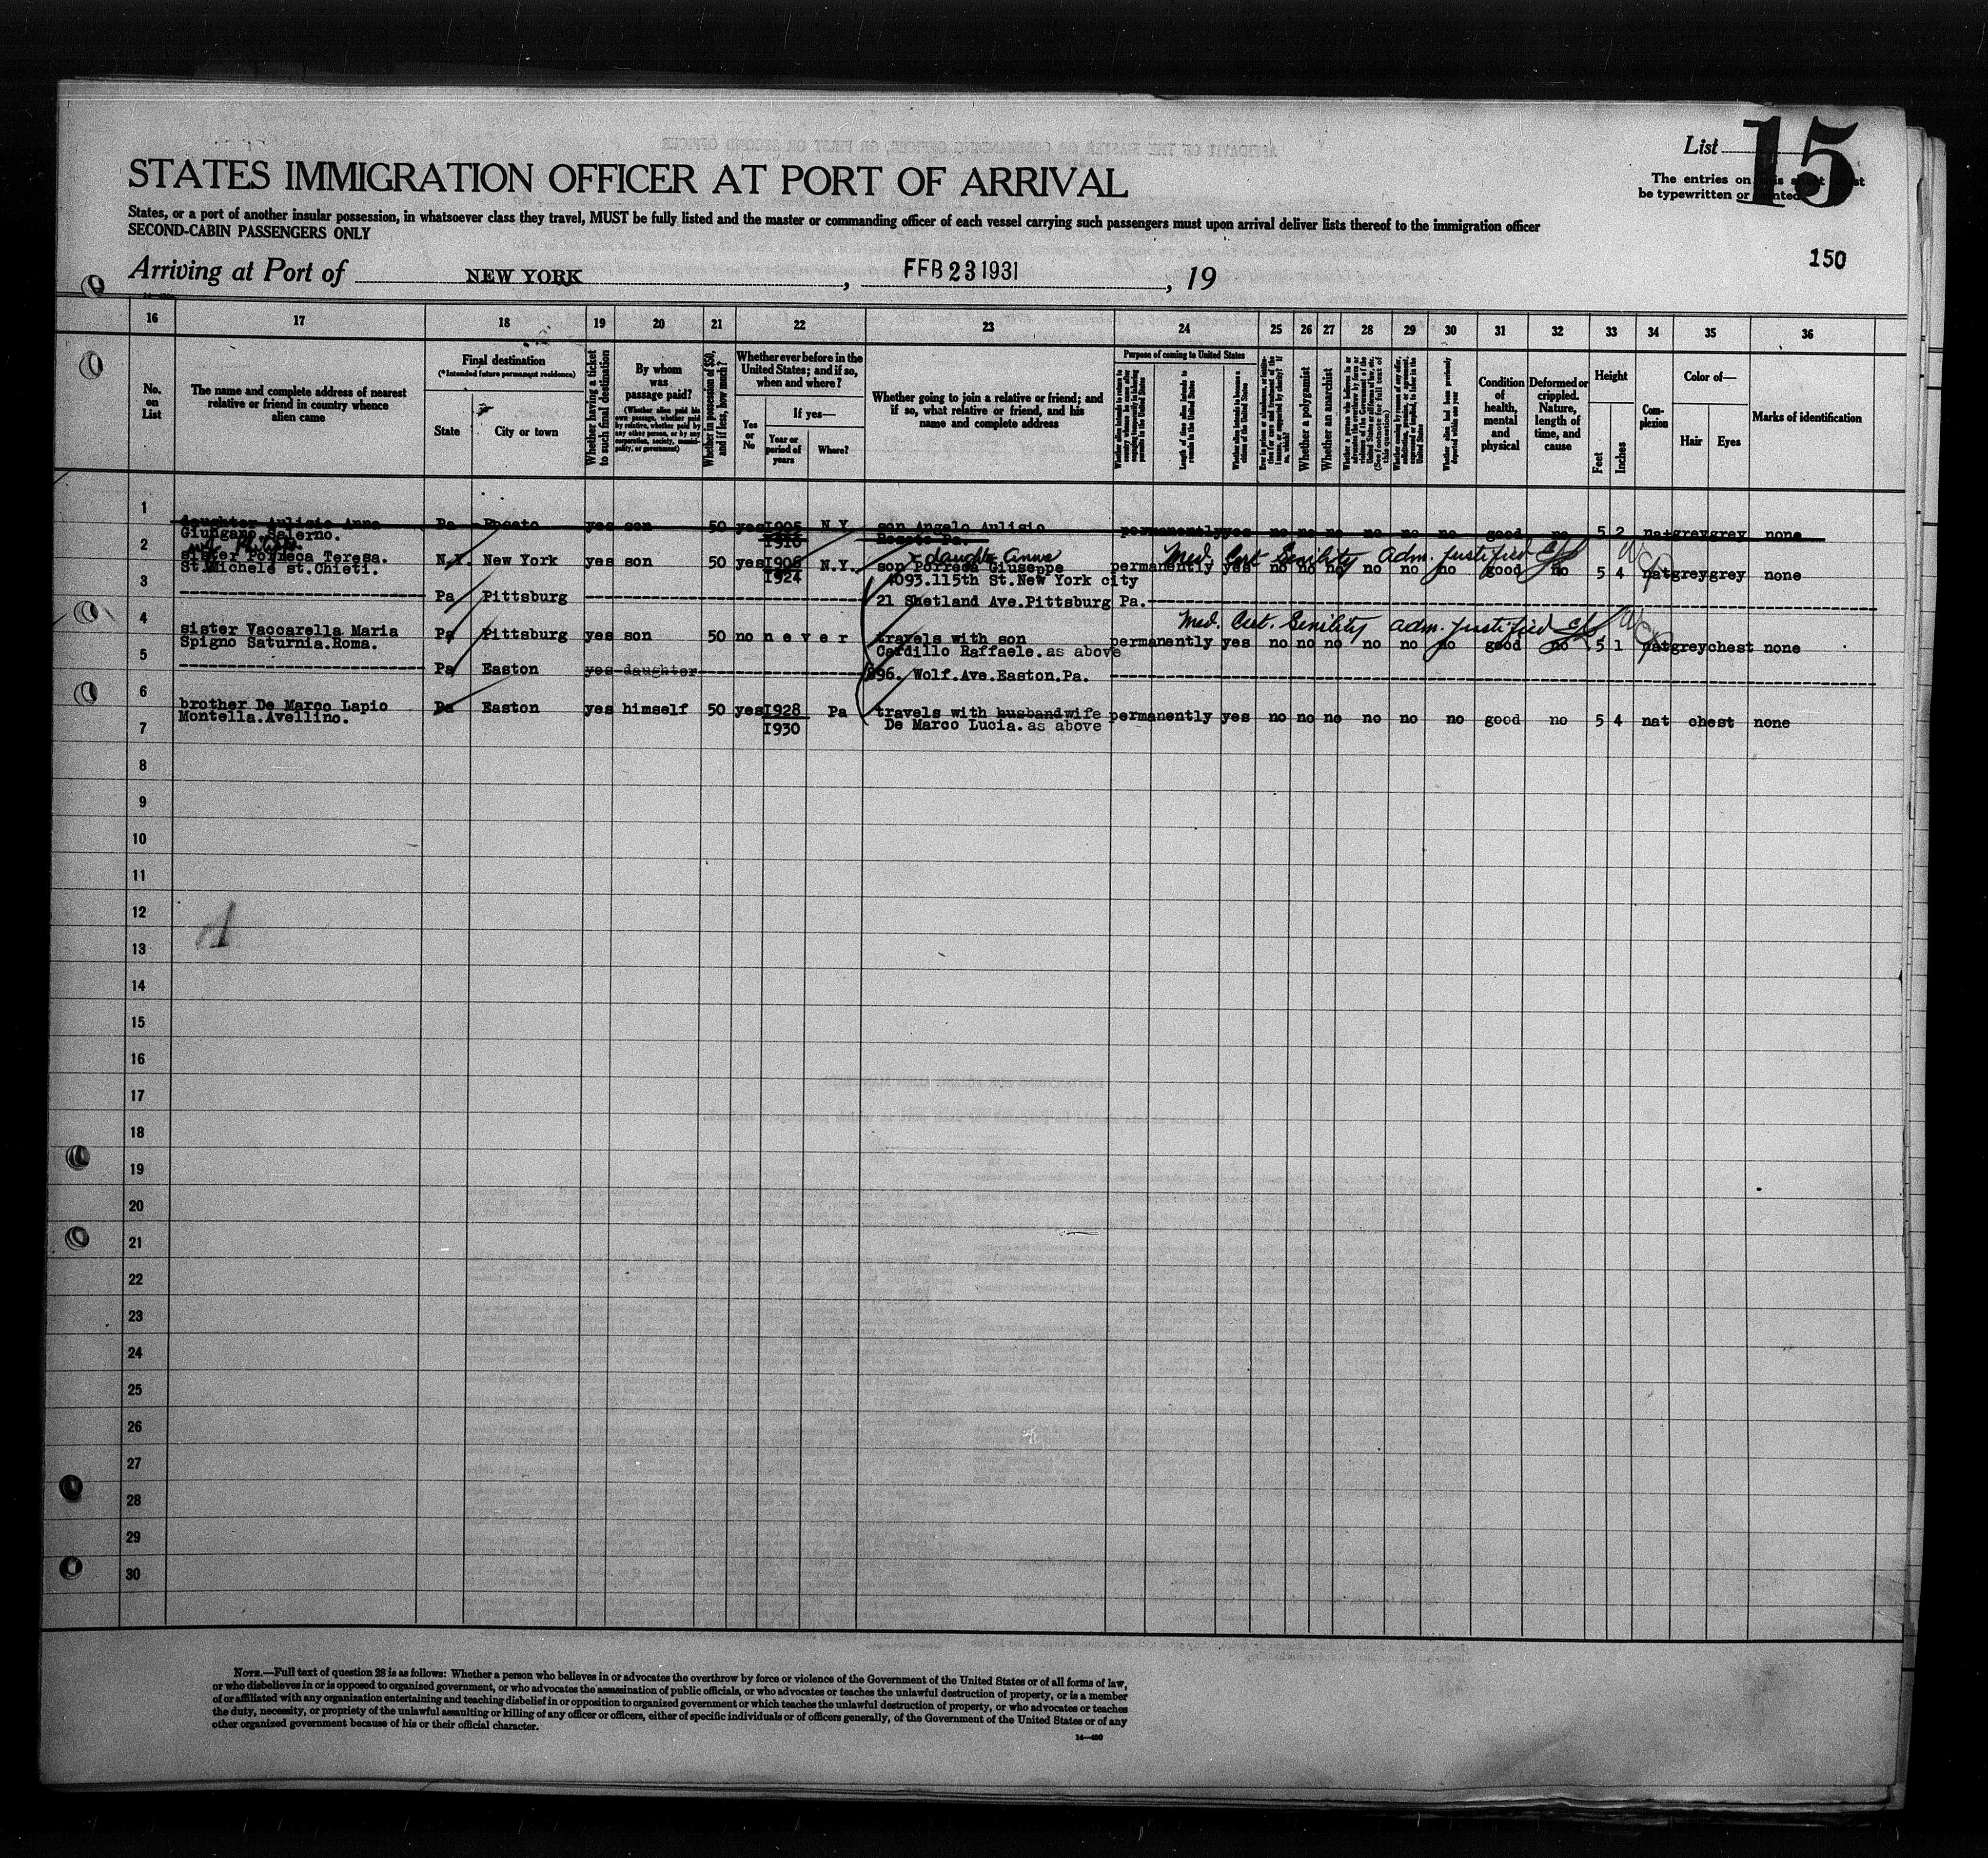 List 15
The entries on
be typewritten or
STATES IMMIGRATION OFFICER AT PORT OF ARRIVAL
States, or a port of another insular possession, in whatsoever class they travel, MUST be fully listed and the master or commanding officer of each vessel carrying such passengers must upon arrival deliver lists thereof to the immigration officer
SECOND-CABIN PASSENGERS ONLY
150
Arriving at Port of NEW YORK, FEB 23 1931, 19
16 17 18 19 20 21 22 23 24 25 26 27 28 29 30 31 32 33 34 35 36
No. on List
The name and complete address of nearest relative or friend in country whence alien came
Final destination
(*Intended future permanent residence)
State
City or town
Whether having a ticket to such final destination
By whom was passage paid?
(Whether alien paid his own passage, whether paid by relative, whether paid by any other person, or by any corporation, society, municipality, or government)
Whether in possession of $50, and if less, how much?
Whether ever before in the United States; and if so, when and where?
Yes or No
If yes—
Year or period of years
Where?
Whether going to join a relative or friend; and if so, what relative or friend, and his name and complete address
Purpose of coming to United States
Length of time alien intends to remain in the United States
Whether alien intends to become a citizen of the United States
Whether a polygamist
Whether an anarchist
Condition of health, mental and physical
Deformed or crippled. Nature, length of time, and cause
Height
Feet
Inches
Complexion
Color of—
Hair
Eyes
Marks of identification
1
daughter Aulisio Anna Pa yes son 50 yes 1905 N.Y. son Angelo Aulisio permanently yes no no no no no no good no 5 2 nat grey grey none
Giungano Salerno. 1916
2
& daughter Anna Med. Cert. Senility adm. justified
sister Porreca Teresa. N.Y. New York yes son 50 yes 1906 N.Y. son Porreca Giuseppe permanently yes no no no no no no good no 5 4 nat grey grey none
St.Michele st.Chieti. 1924 4093.115th St.New York city
3
Pa Pittsburg 21 Shetland Ave.Pittsburg Pa.
4
Med. Cert. Senility adm. justified
sister Vaccarella Maria Pa Pittsburg yes son 50 no never travels with son permanently yes no no no no no no good no 5 1 nat grey chest none
Spigno Saturnia.Roma. Cardillo Raffaele.as above
5
Pa Easton yes daughter 896. Wolf.Ave.Easton.Pa.
6
brother De Marco Lapio Pa Easton yes himself 50 yes 1928 Pa travels with husband wife permanently yes no no no no no no good no 5 4 nat chest none
Montella.Avellino. 1930 De Marco Lucia.as above
7
8
9
10
11
12
13
14
15
16
17
18
19
20
21
22
23
24
25
26
27
28
29
30
NOTE.—Full text of question 28 is as follows: Whether a person who believes in or advocates the overthrow by force or violence of the Government of the United States or of all forms of law,
or who disbelieves in or is opposed to organized government, or who advocates the assassination of public officials, or who advocates or teaches the unlawful destruction of property, or is a member
of or affiliated with any organization entertaining and teaching disbelief in or opposition to organized government or which teaches the unlawful destruction of property, or who advocates or teaches
the duty, necessity, or propriety of the unlawful assaulting or killing of any officer or officers, either of specific individuals or of officers generally, of the Government of the United States or of any
other organized government because of his or their official character.